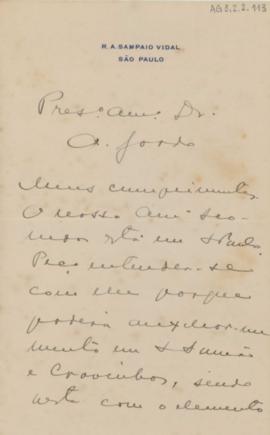 AG 8.2.2.113
R. A. SAMPAIO VIDAL
SÃO PAULO
Pres.º am.º Dr.
A. Gordo
Meus cumprimentos
O nosso am.º
está em S Paulo
Peço entender-se
com elle porque
poderá auxiliar-
em S Simão
e Cravinhos, sendo
esta com o elemento